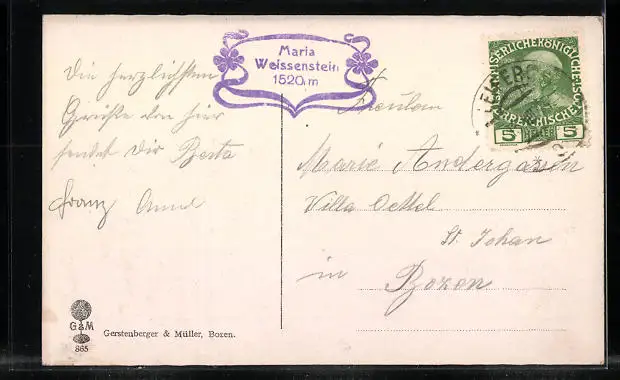 Maria
Weissenstein
1520 m
Die herzlichsten
Grüße von hier
sendet Dir Berta
Franz Anna
KAISERLICHEKÖNIGLICHE
ÖSTERREICHISCHE
5 5
Fräulein
Marie Andergassen
Villa Oettel
St. Johan
in Bozen
G&M
865
Gerstenberger & Müller, Bozen.